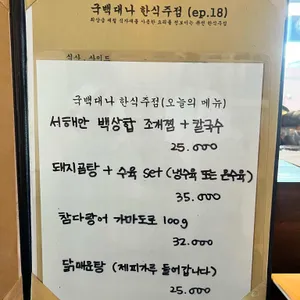 국백대나 한식주점 (ep.18)
식사 사이드
국백대나 한식주점(오늘의 메뉴)
서해안 백상합 조개찜 + 칼국수
25.000
돼지곰탕 + 수육 set (냉수육 또는 온수육)
35.000
참다랑어 가마도로 100g
32.000
닭매운탕 (제피가루 들어갑니다)
25.000